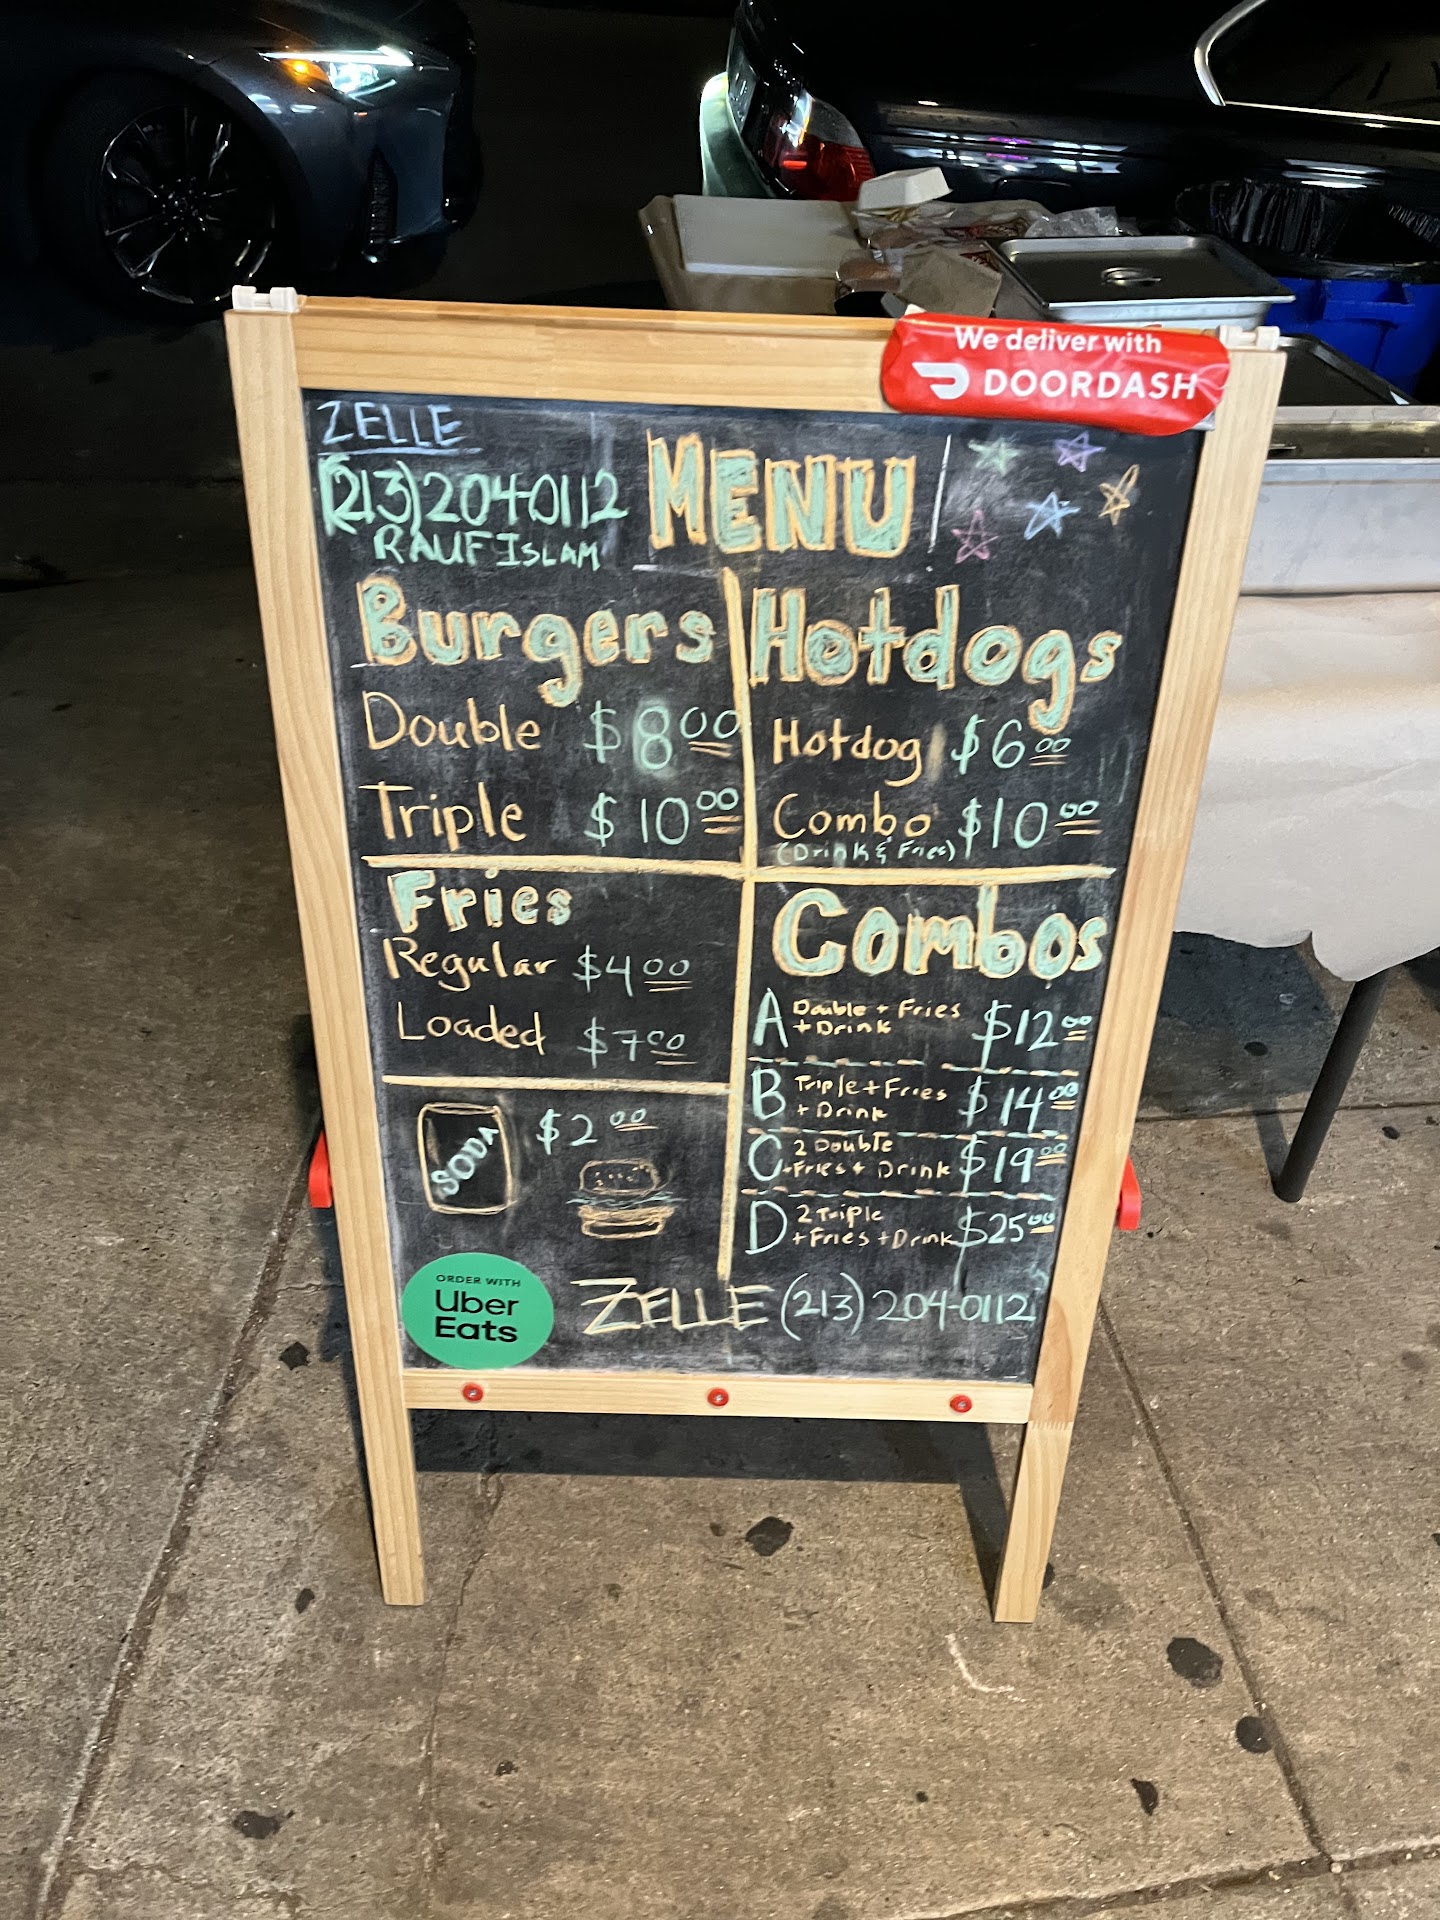 We deliver with
DOORDASH
ZELLE
(213)204-0112
RAUF ISLAM
MENU
Burgers
Double $8.00
Triple $10.00
Hotdogs
Hotdog $6.00
Combo $10.00
(Drink & Fries)
Fries
Regular $4.00
Loaded $7.00
SODA $2.00
Combos
A Double + Fries
+ Drink $12.00
B Triple + Fries
+ Drink $14.00
C 2 Double
+Fries + Drink $19.00
D 2 Triple
+Fries +Drink $25.00
ORDER WITH
Uber
Eats
ZELLE (213) 204-0112